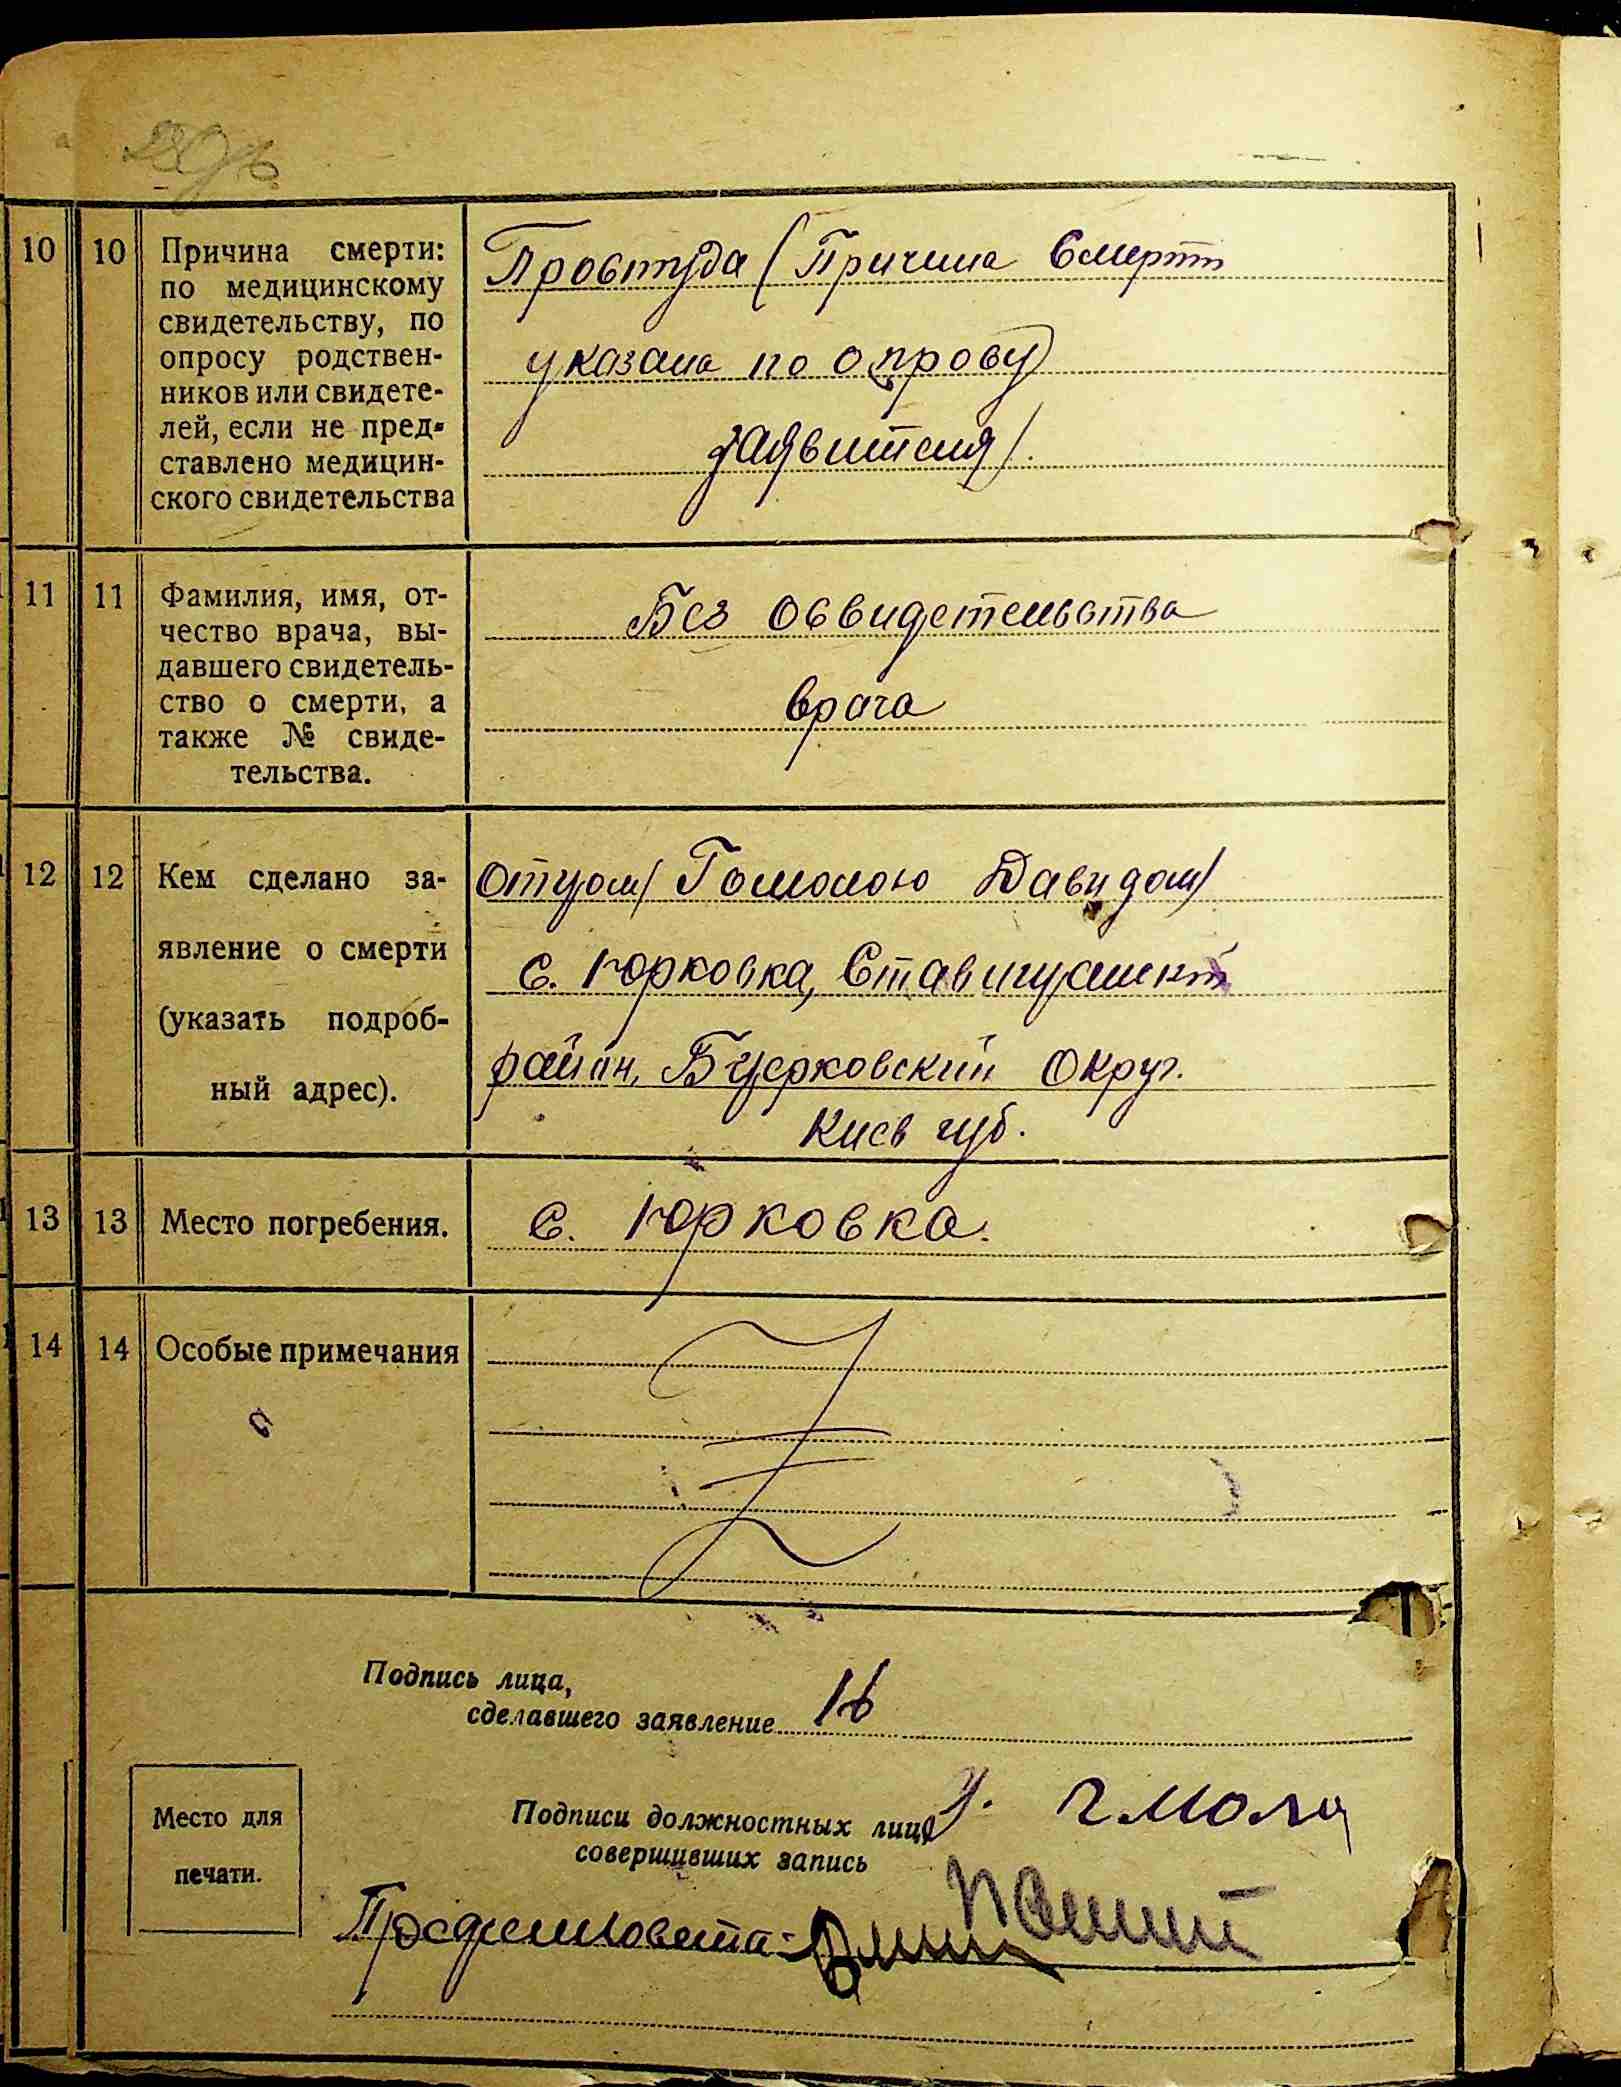 10 10 Причина смерти:
по медицинскому
свидетельству, по
опросу родствен-
ников или свидете-
лей, если не пред-
ставлено медицин-
ского свидетельства
Простуда (Причина Смерти
указана по опросу
заявителя).
11 11 Фамилия, имя, от-
чество врача, вы-
давшего свидетель-
ство о смерти, а
также № свиде-
тельства.
Без освидетельства
врача
12 12 Кем сделано за-
явление о смерти
(указать подроб-
ный адрес).
Отцом/ Гомолою Давидом/
с. Юрковка,
район, Округ.
Киев губ.
13 13 Место погребения.
с. Юрковка.
14 14 Особые примечания
Подпись лица,
сделавшего заявление
Место для
печати.
Подписи должностных лиц,
совершивших запись